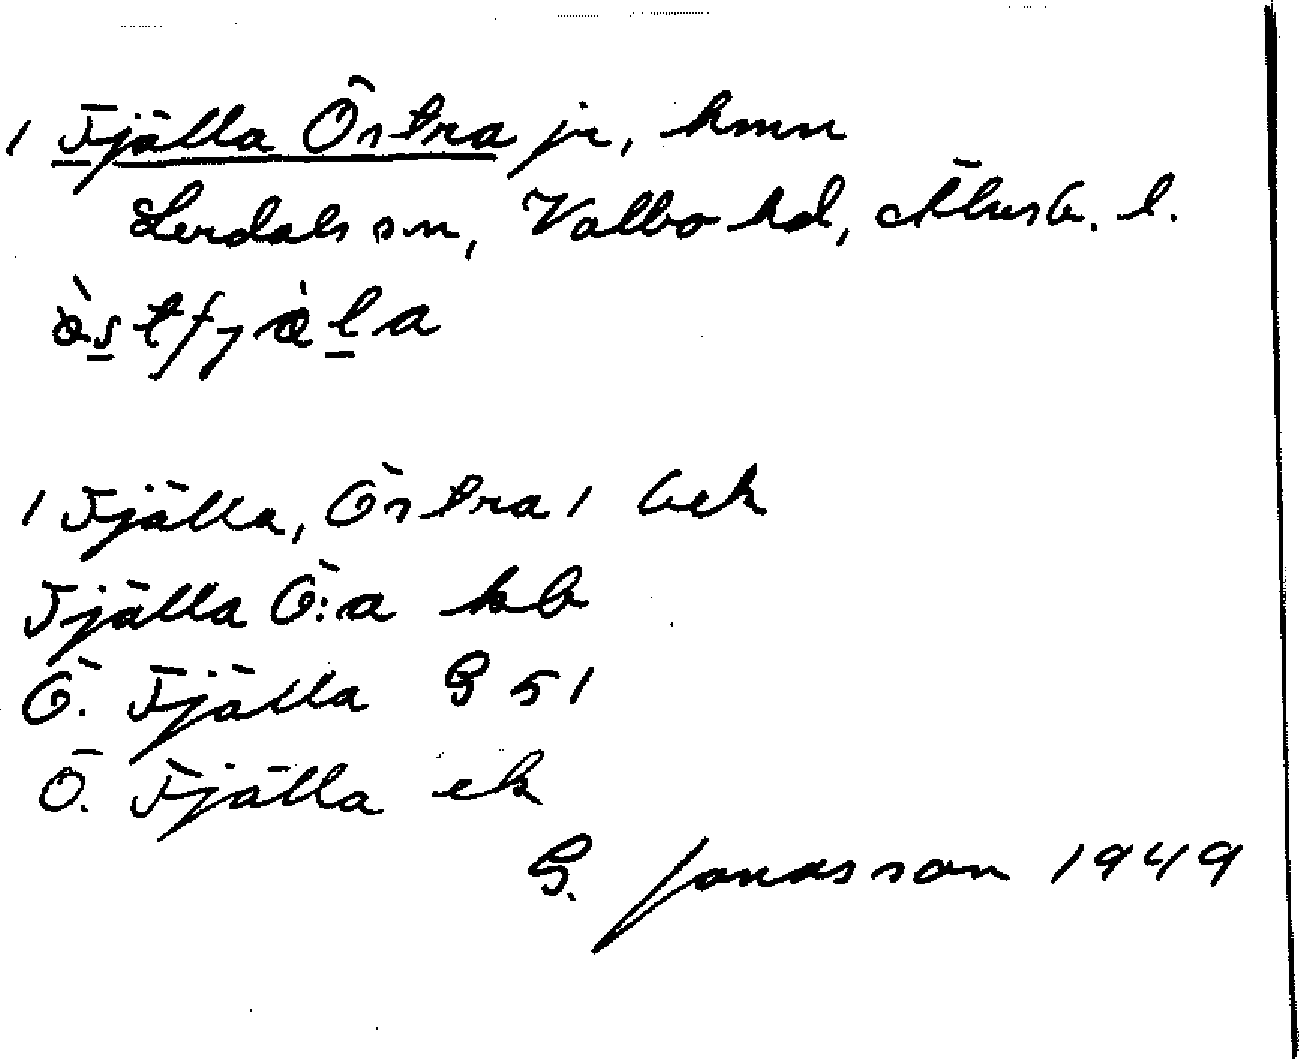 1 Fjälla Östra jr, hmn
Lerdals sn, Valbo hd, Älvsb. l.
òstfjæ̀la
1 Fjälla, Östra 1 bek
Fjälla Ö:a kb
Ö. Fjälla G 51
Ö. Fjälla ek
G. Jonasson 1949